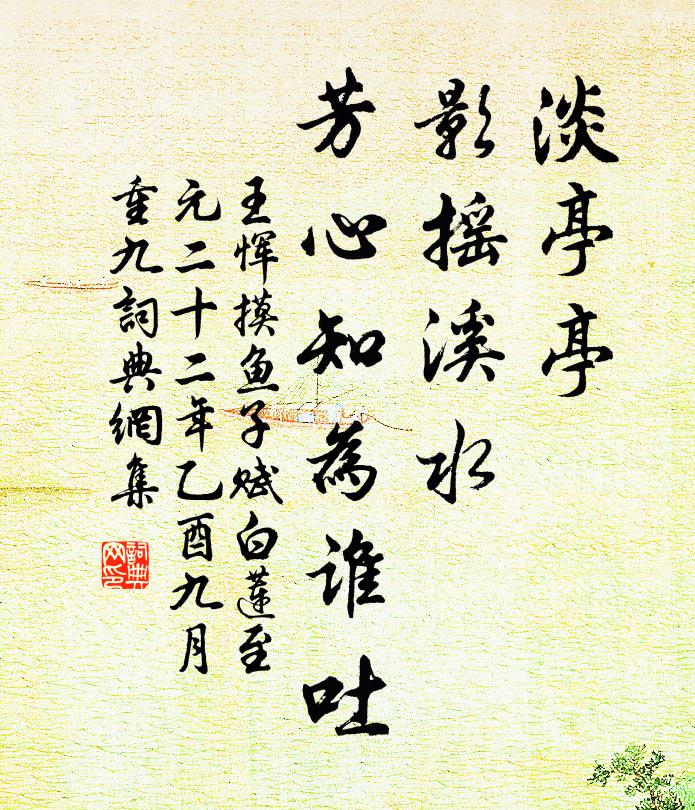 淡亭亭
影摇溪水
芳心知為誰吐
王恽摸鱼子赋白莲至
元二十二年乙酉九月
重九詞典網集
詞典
网印